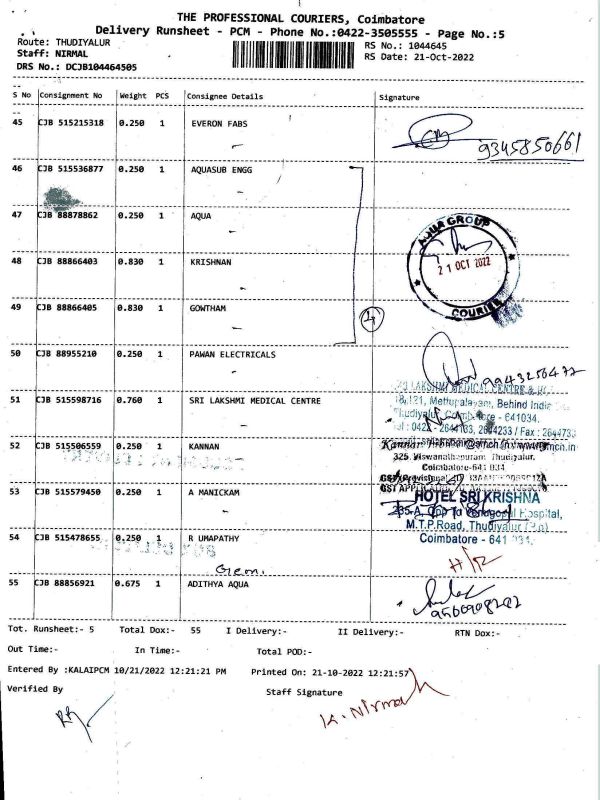 THE PROFESSIONAL COURIERS, Coimbatore
Delivery Runsheet - PCM - Phone No.:0422-3505555 - Page No.:5
Route: THUDIYALUR
RS No.: 1044645
Staff: NIRMAL
RS Date: 21-Oct-2022
DRS No.: DCJB104464505
S No Consignment No Weight PCS Consignee Details Signature
45 CJB 515215318 0.250 1 EVERON FABS
9345850661
46 CJB 515536877 0.250 1 AQUASUB ENGG
47 CJB 88878862 0.250 1 AQUA
AQUA GROUP
21 OCT 2022
COURIER
48 CJB 88866403 0.830 1 KRISHNAN
49 CJB 88866405 0.830 1 GOWTHAM
4
50 CJB 88955210 0.250 1 PAWAN ELECTRICALS
9943256472
LAKSHMI MEDICAL CENTRE &
51 CJB 515598716 0.760 1 SRI LAKSHMI MEDICAL CENTRE
18,121, Mettupalayam, Behind India
Thudiyalur, Coimbatore - 641034.
52 CJB 515506559 0.250 1 KANNAN
325, Viswanathapuram, Thudiyalur,
Coimbatore-641 034
53 CJB 515579450 0.250 1 A MANICKAM
HOTEL SRI KRISHNA
Hospital,
M.T.P.Road, Thudiyalur (Po)
54 CJB 515478655 0.250 1 R UMAPATHY
Coimbatore - 641 034.
Gem.
55 CJB 88856921 0.675 1 ADITHYA AQUA
Tot. Runsheet:- 5 Total Dox:- 55 I Delivery:- II Delivery:- RTN Dox:-
Out Time:- In Time:- Total POD:-
Entered By :KALAIPCM 10/21/2022 12:21:21 PM Printed On: 21-10-2022 12:21:57
Verified By
Staff Signature
K. Nirmal